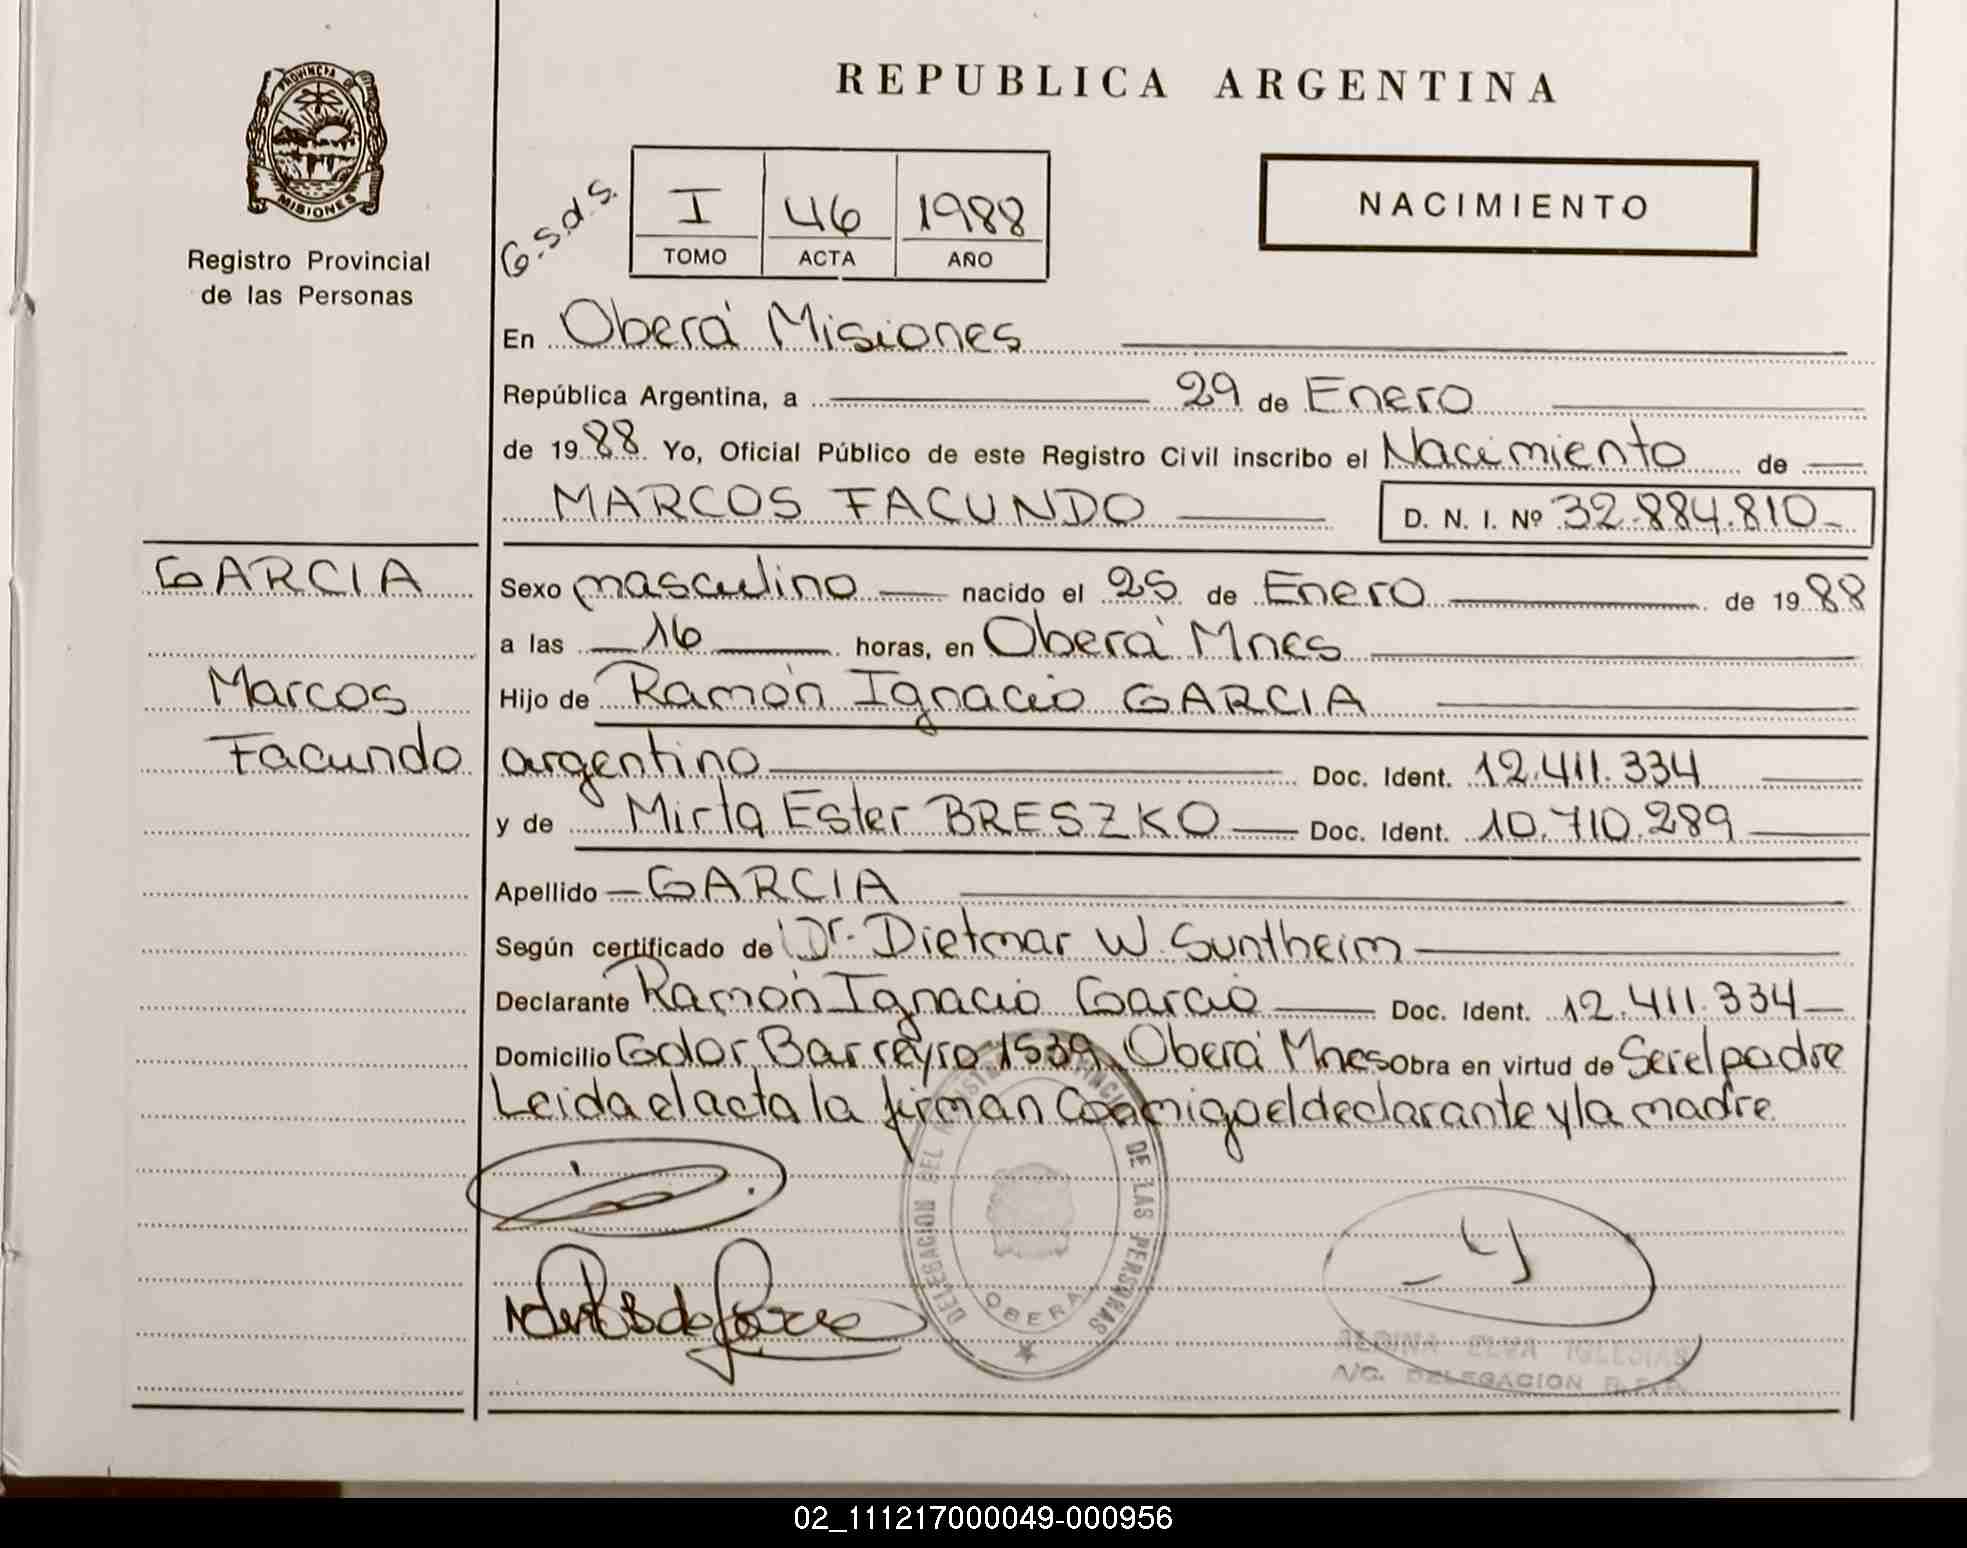 REPUBLICA ARGENTINA
PROVINCIA DE
MISIONES
Registro Provincial
de las Personas
G.s.d.s.
I 46 1988
TOMO ACTA AÑO
NACIMIENTO
En Oberá Misiones
República Argentina, a 29 de Enero
de 1988 Yo, Oficial Público de este Registro Civil inscribo el Nacimiento de
MARCOS FACUNDO D. N. I. Nº 32.884.810
GARCIA
Marcos
Facundo
Sexo masculino nacido el 25 de Enero de 1988
a las 16 horas, en Oberá Mnes
Hijo de Ramón Ignacio GARCIA
argentino Doc. Ident. 12.411.334
y de Mirta Ester BRESZKO Doc. Ident. 10.710.289
Apellido GARCIA
Según certificado de Dr. Dietmar W. Suntheim
Declarante Ramón Ignacio Garcia Doc. Ident. 12.411.334
Domicilio Gdor. Barreyro 1539 Oberá Mnes Obra en virtud de Ser el padre
Leida el acta la firman Conmigo el declarante y la madre
DELEGACION DEL REGISTRO PROVINCIAL DE LAS PERSONAS
OBERA
ELVA IGLESIAS
A/C. DELEGACION R.P.P.
02_111217000049-000956